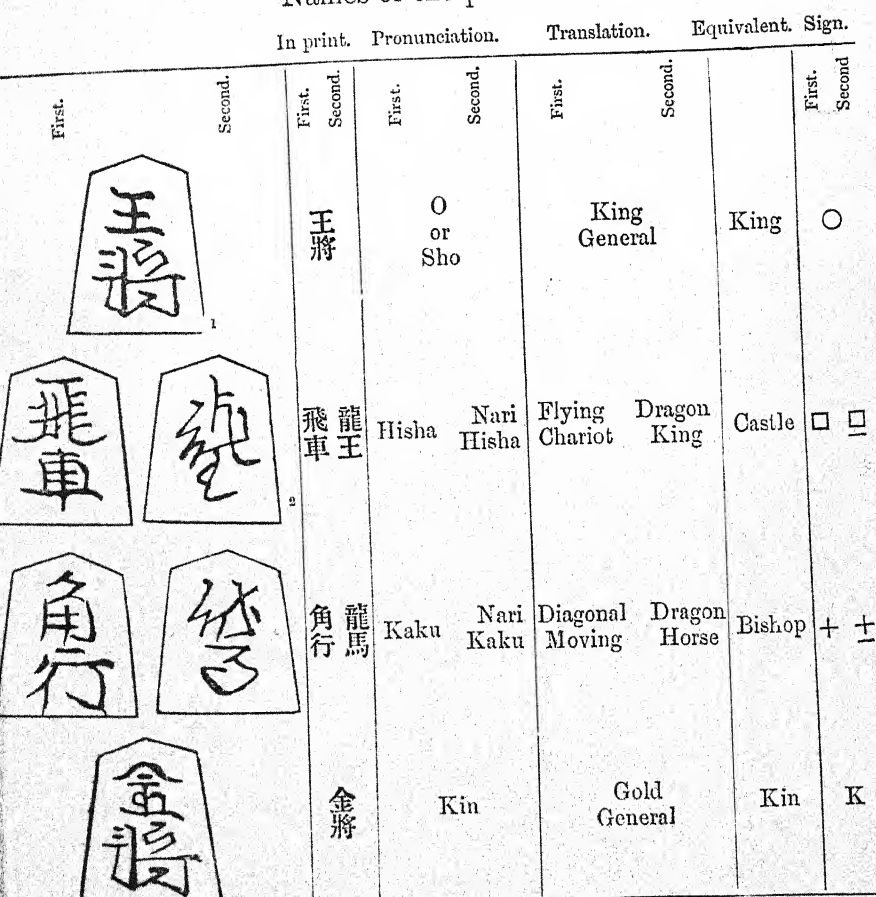 In print. Pronunciation. Translation. Equivalent. Sign.
First. Second. First. Second. First. Second. First. Second. First. Second
王將
1
王將
O
or
Sho
King
General
King ○
飛車
2
飛車 龍王
Hisha Nari Hisha
Flying Chariot Dragon King
Castle □ □
角行
角行 龍馬
Kaku Nari Kaku
Diagonal Moving Dragon Horse
Bishop + +
金將
金將
Kin
Gold
General
Kin K